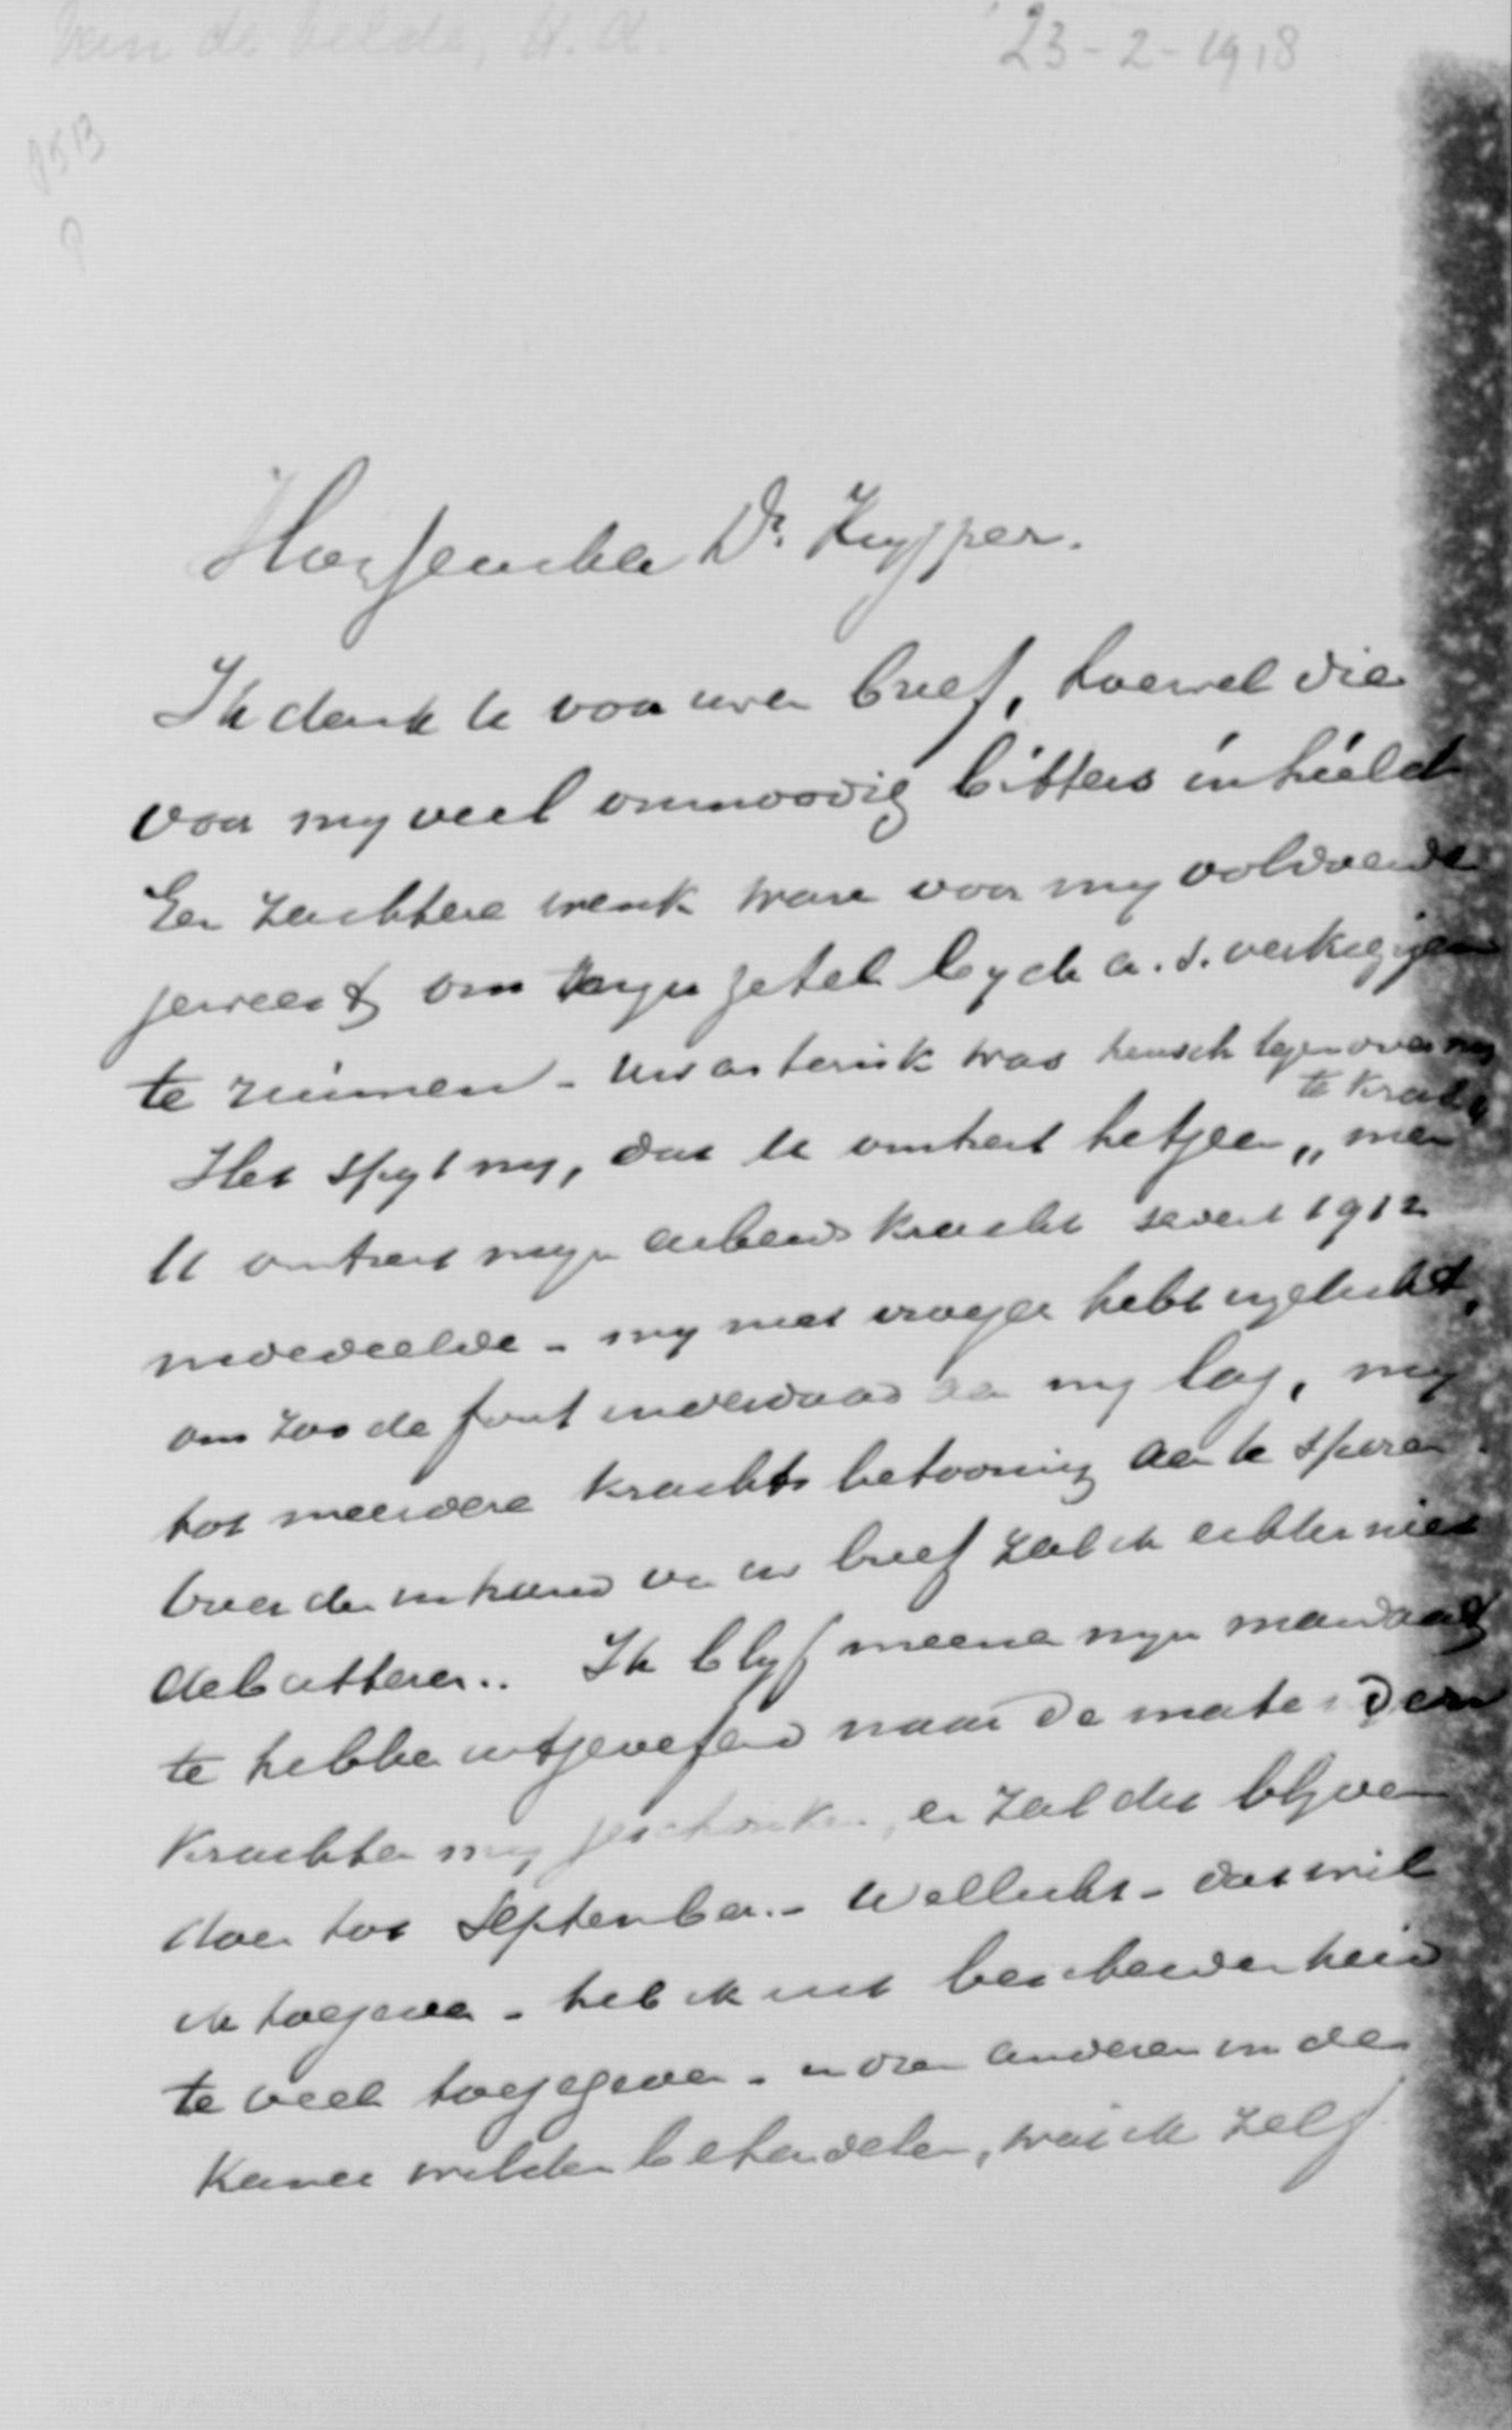 van de Velde, 23-2-1918
Hooggeachte Dr. Kuyper.
Ik dank U voor uwen brief, hoewel die
voor my veel onnoodig bitters inhield
Een zachtere wenk ware voor my voldoende
geweest om myn zetel by de a.s. verkiezingen
te ruimen - Uw asterisk was heusch tegenover my
te kras
Het spyt my, dat U omtrent hetgeen „men
U omtrent myn arbeidskracht sedert 1912
mededeelde - my niet vroeger hebt ingelicht,
om zoo de fout inderdaad aan my lag, my
tot meerdere krachtsbetooning aan te sporen.
Over den inhoud van uw brief zal ik echter niet
debatteren.. Ik blyf meenen myn mandaat
te hebben uitgeoefend naar de mate der
krachten my geschonken, en zal dit blyven
doen tot September. - Wellicht - dat wil
ik toegeven - heb ik uit bescheidenheid
te veel toegegeven - indien anderen in de
Kamer wilden behandelen, wat ik zelf